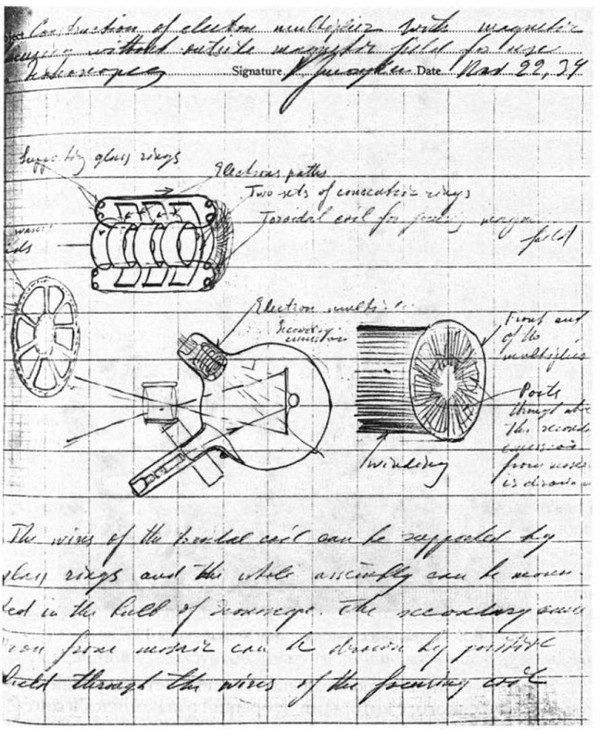 Construction of electron multiplier with magnetic
without outside magnetic field for use
Signature Date Nov 22, 34
Supporting glass rings
Electrons paths
Two sets of concentric rings
Toroidal coil for magn
field
Electron multi
Secondary
emission
Front end
of the
multiplier
Ports
through
the second
emission
from mosaic
is drawn
winding
The wires of the toroidal coil can be supported by
glass rings and the whole assembly can be moun
ted in the bulb of iconoscope. The secondary emiss
ion from mosaic can be drawn by positive
field through the wires of the focusing coil